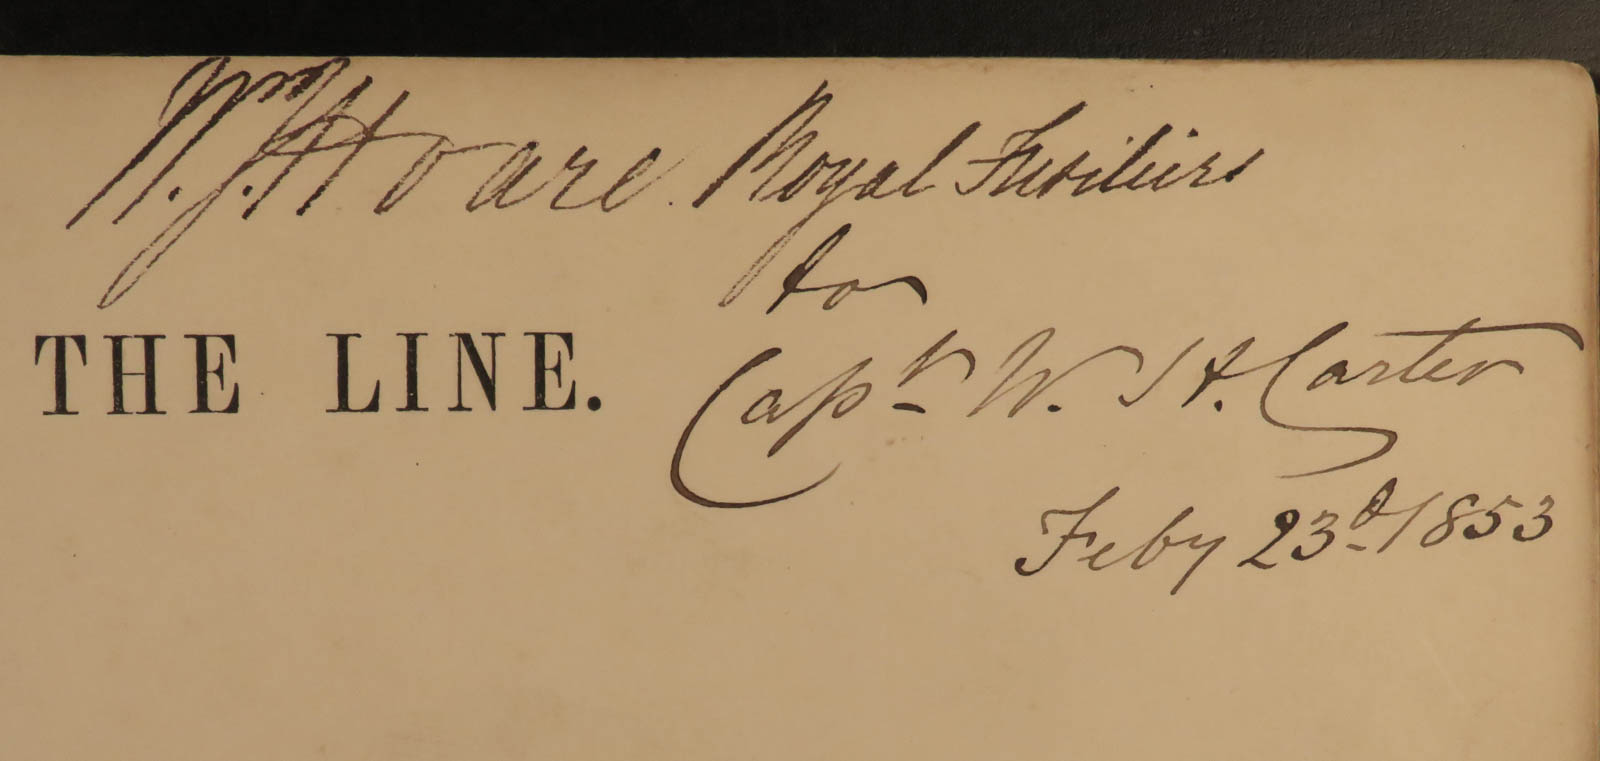 Wm. J. Hoare. Royal Fusiliers
to
THE LINE.
Capt. W. H. Carter
Feby 23d. 1853